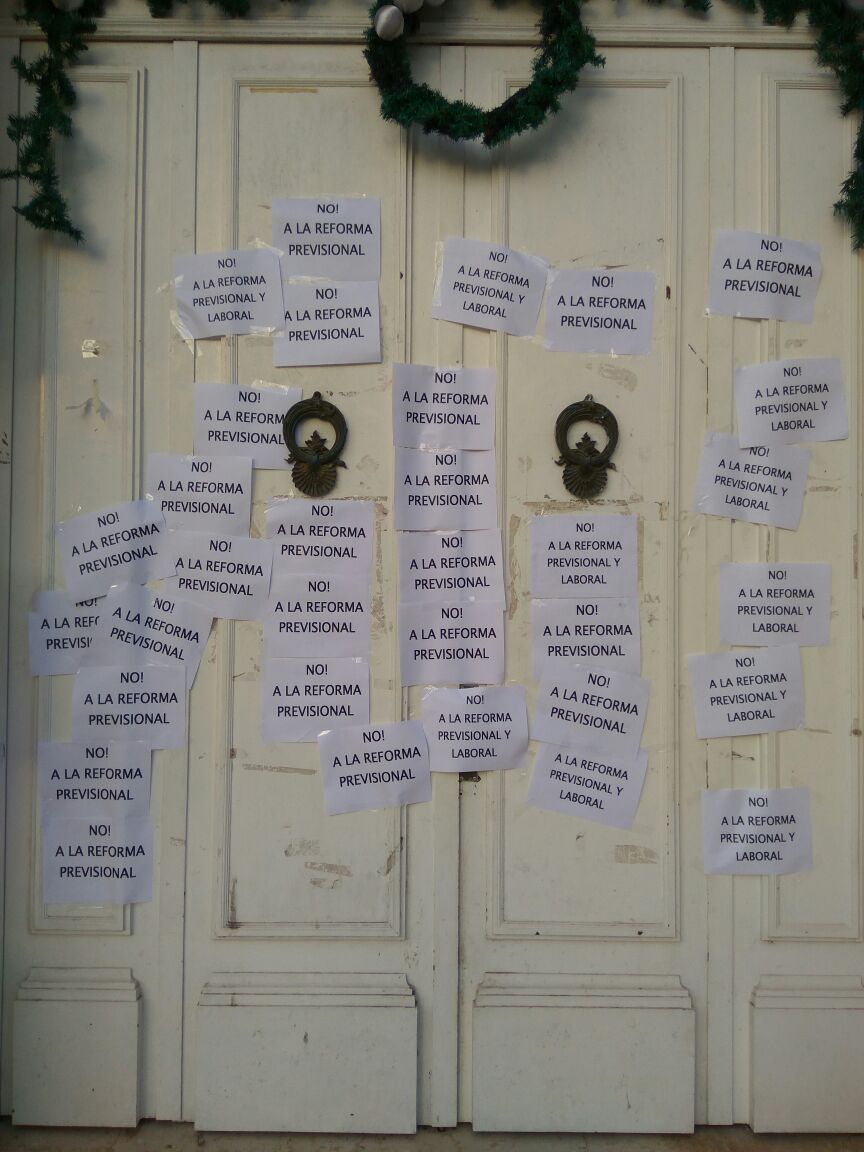 NO!
A LA REFORMA
PREVISIONAL
NO!
A LA REFORMA
PREVISIONAL Y
LABORAL
NO!
A LA REFORMA
PREVISIONAL
NO!
A LA REFORMA
PREVISIONAL Y
LABORAL
NO!
A LA REFORMA
PREVISIONAL
NO!
A LA REFORMA
PREVISIONAL
NO!
A LA REFORM
PREVISIONAL
NO!
A LA REFORMA
PREVISIONAL
NO!
A LA REFORMA
PREVISIONAL Y
LABORAL
NO!
A LA REFORMA
PREVISIONAL
NO!
A LA REFORMA
PREVISIONAL
NO!
A LA REFORMA
PREVISIONAL Y
LABORAL
NO!
A LA REFORMA
PREVISIONAL
NO!
A LA REFORMA
PREVISIONAL
NO!
A LA REFORMA
PREVISIONAL
NO!
A LA REFORMA
PREVISIONAL
NO!
A LA REFORMA
PREVISIONAL Y
LABORAL
NO!
A LA REFORMA
PREVISIONAL Y
LABORAL
NO!
A LA REF
PREVISI
NO!
A LA REFORMA
PREVISIONAL
NO!
A LA REFORMA
PREVISIONAL
NO!
A LA REFORMA
PREVISIONAL
NO!
A LA REFORMA
PREVISIONAL
NO!
A LA REFORMA
PREVISIONAL Y
LABORAL
NO!
A LA REFORMA
PREVISIONAL
NO!
A LA REFORMA
PREVISIONAL
NO!
A LA REFORMA
PREVISIONAL
NO!
A LA REFORMA
PREVISIONAL Y
LABORAL
NO!
A LA REFORMA
PREVISIONAL
NO!
A LA REFORMA
PREVISIONAL
A LA REFORMA
PREVISIONAL Y
LABORAL
NO!
A LA REFORMA
PREVISIONAL Y
LABORAL
NO!
A LA REFORMA
PREVISIONAL